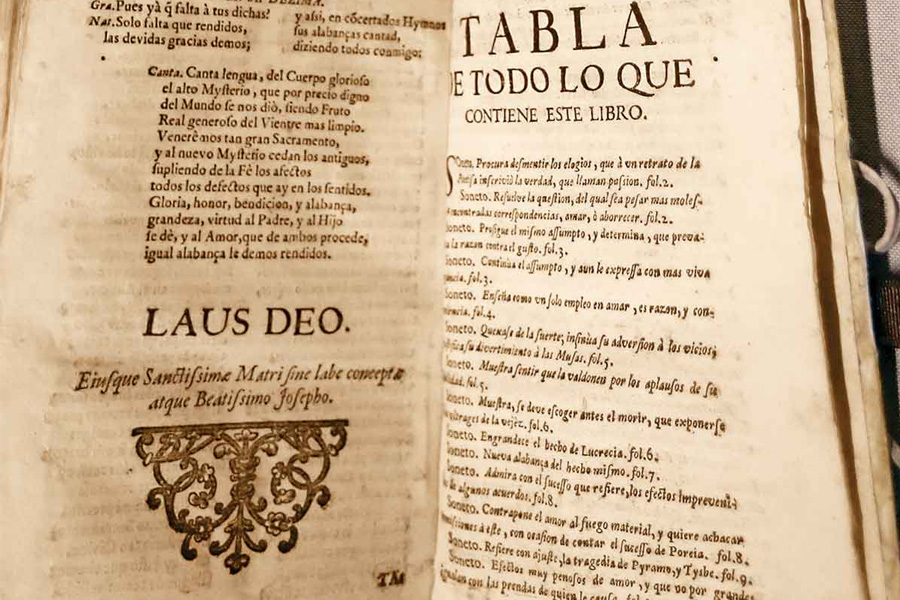 DEZIMA.
Gra. Pues yà q̃ falta à tus dichas?
Nat. Solo falta que rendidos,
las devidas gracias demos;
y assi, en cõcertados Hymnos
sus alabanças cantad,
diziendo todos conmigo:
Canta. Canta lengua, del Cuerpo glorioso
el alto Mysterio, que por precio digno
del Mundo se nos diò, siendo Fruto
Real generoso del Vientre mas limpio.
Venerèmos tan gran Sacramento,
y al nuevo Mysterio cedan los antiguos,
supliendo de la Fè los afectos
todos los defectos que ay en los sentidos.
Gloria, honor, bendicion, y alabança,
grandeza, virtud al Padre, y al Hijo
se dè, y al Amor, que de ambos procede,
igual alabança le demos rendidos.
LAUS DEO.
Eiusque Sanctissimæ Matri sine labe conceptæ
atque Beatissimo Josepho.
TA
TABLA
DE TODO LO QUE
CONTIENE ESTE LIBRO.
Soneto. Procura desmentir los elogios, que à vn retrato de la
Poetisa inscriviò la verdad, que llaman passion. fol.2.
Soneto. Resuelve la question, del qual sea pesar mas moles-
encontradas correspondencias, amar, ò aborrecer. fol.2.
Soneto. Prosigue el mismo assumpto, y determina, que preva-
la razon contra el gusto. fol.3.
Soneto. Continùa el assumpto, y aun le expressa con mas viva
fol.3.
Soneto. Enseña como vn solo empleo en amar, es razon, y con-
fol.4.
Soneto. Quexase de la suerte; insinùa su adversion à los vicios;
su divertimiento à las Musas. fol.5.
Soneto. Muestra sentir que la valdonen por los aplausos de su
fol.5.
Soneto. Muestra, se deve escoger antes el morir, que exponerse
vltrages de la vejez. fol.6.
Soneto. Engrandece el hecho de Lucrecia. fol.6.
Soneto. Nueva alabança del hecho mismo. fol.7.
Soneto. Admira con el sucesso que refiere, los efectos impreveni-
de algunos acuerdos. fol.8.
Soneto. Contrapone el amor al fuego material, y quiere achacar
à este, con ocasion de contar el sucesso de Porcia. fol.8.
Soneto. Refiere con ajuste, la tragedia de Pyramo, y Tysbe. fol.9.
Soneto. Efectos muy penosos de amor, y que no por grandes
igualan con las prendas de quien le causa. fol.